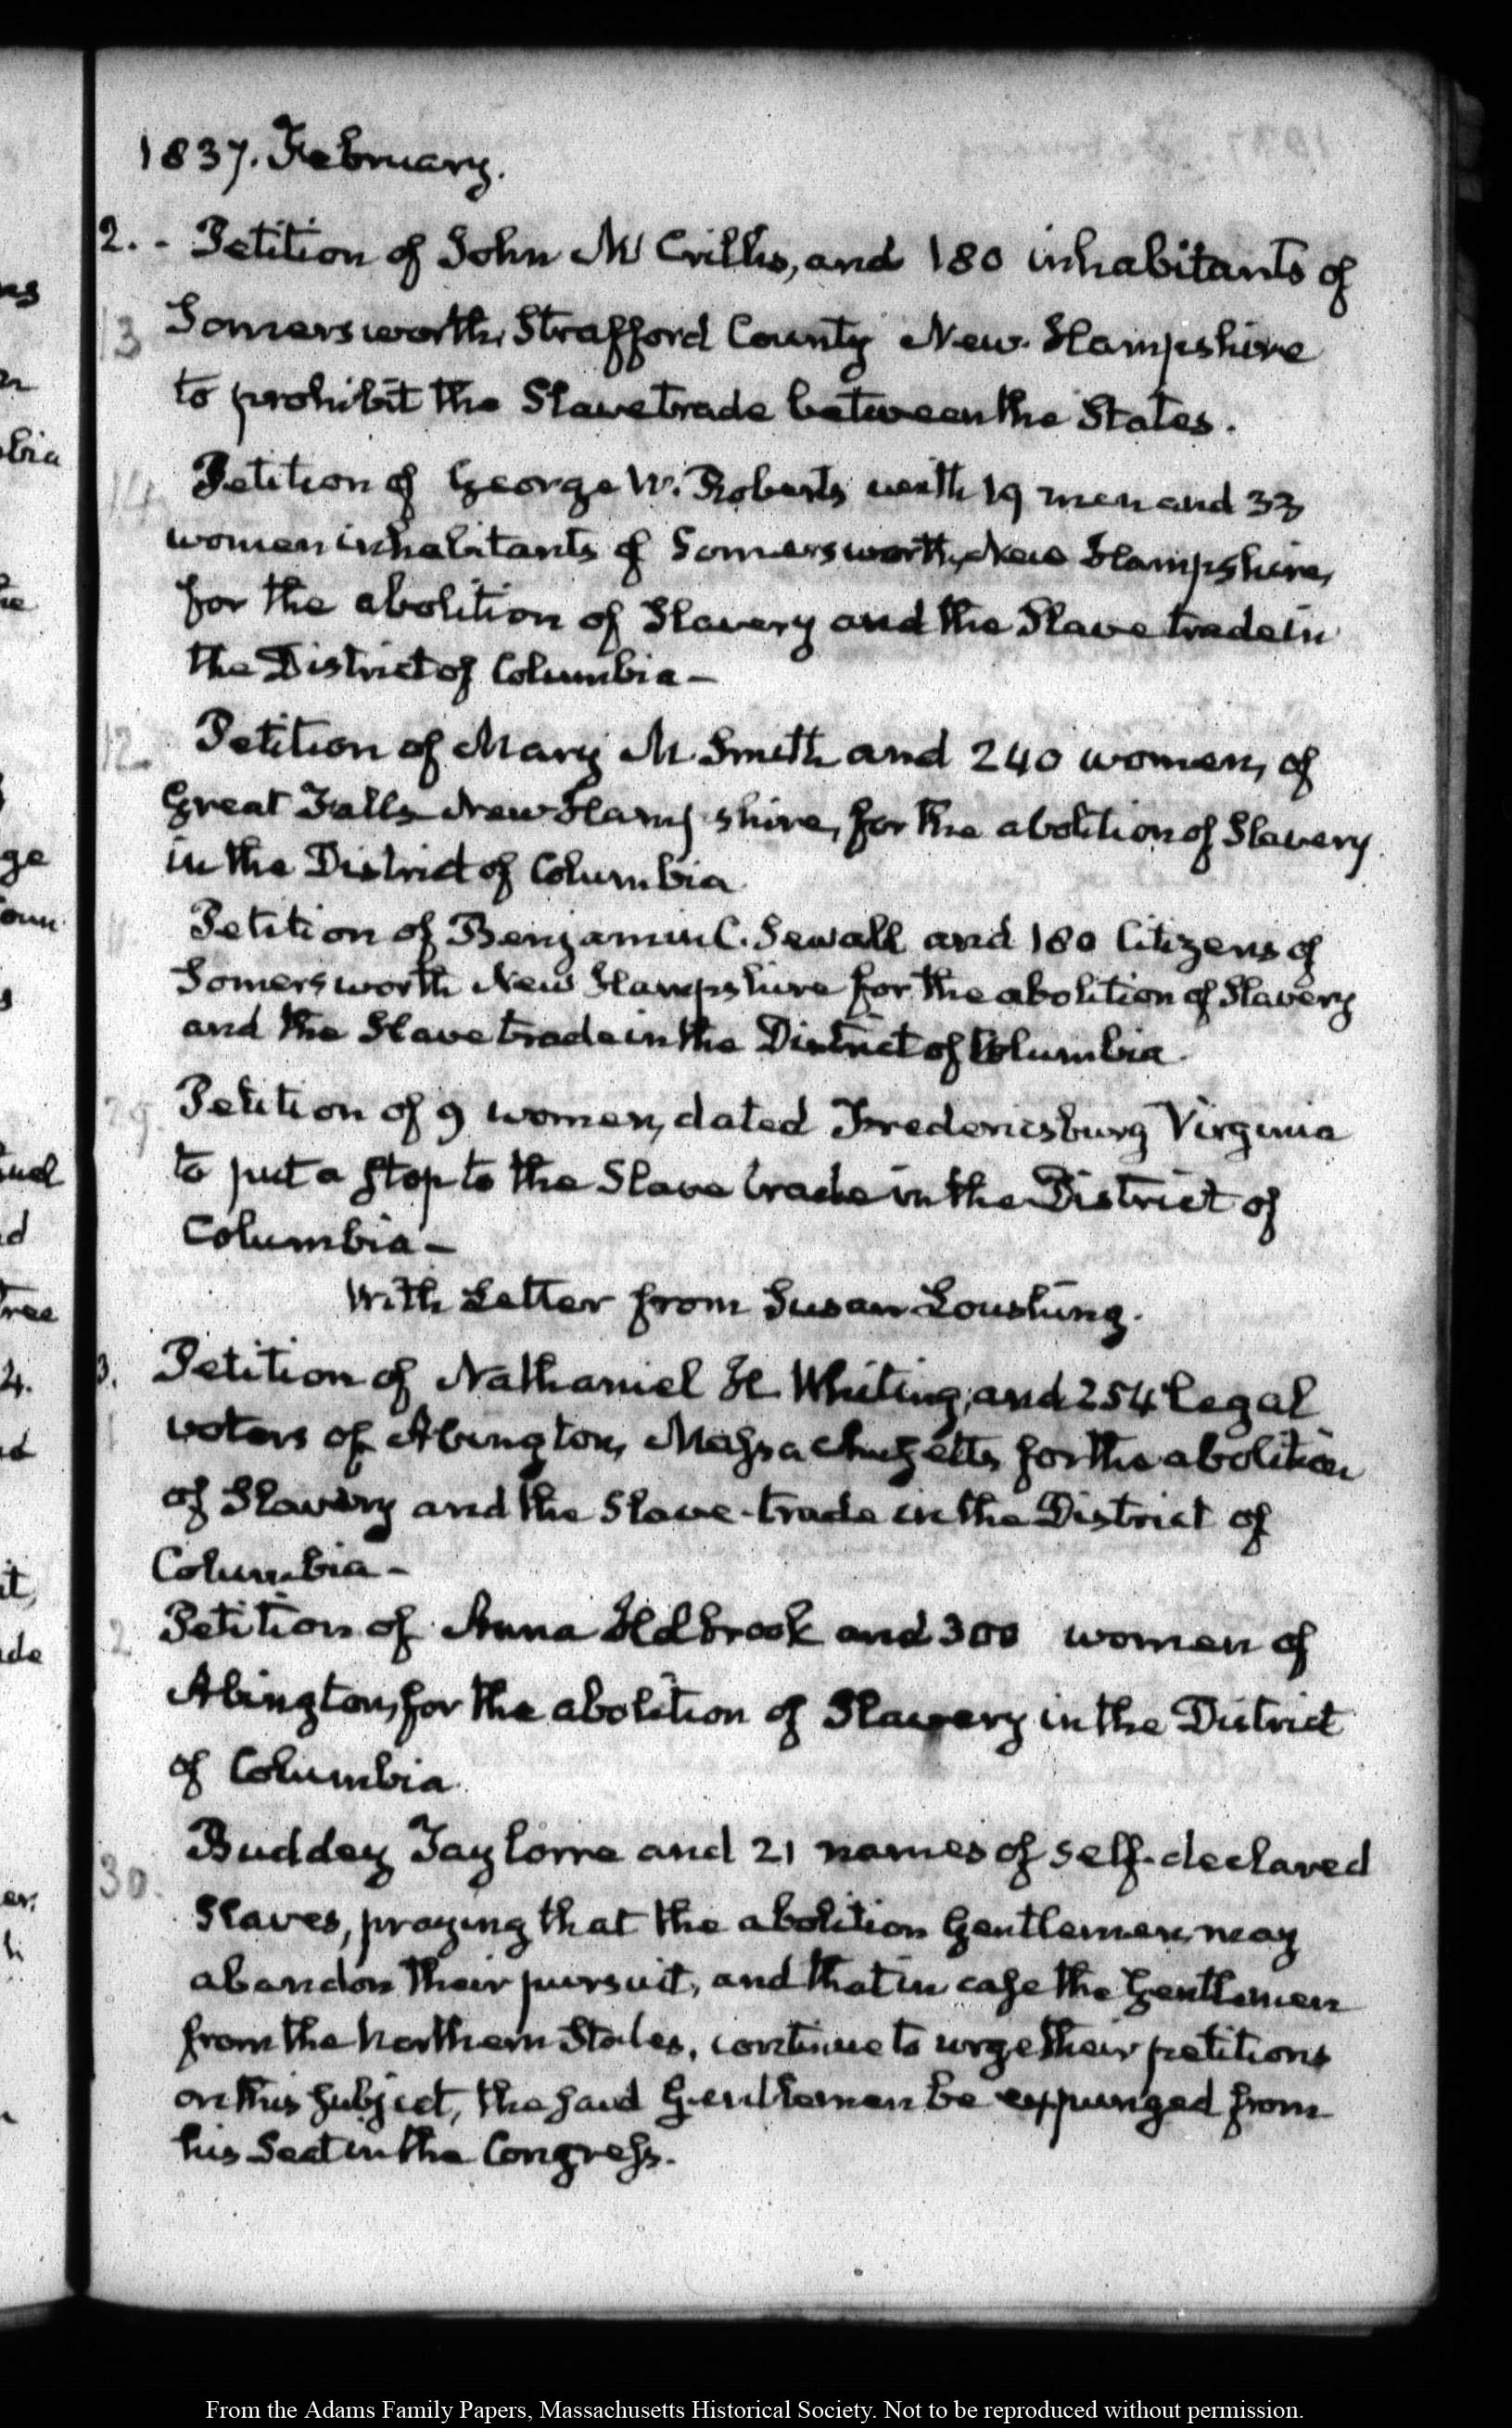 1837. February.
2. - Petition of John McCrillis, and 180 inhabitants of
13 Somersworth, Strafford County New-Hampshire
to prohibit the Slave trade between the States.
14 Petition of George W. Roberts with 19 men and 33
women inhabitants of Somersworth, New Hampshire,
for the abolition of Slavery and the Slave trade in
the District of Columbia —
12. Petition of Mary M. Smith and 240 women, of
Great Falls New Hampshire, for the abolition of Slavery
in the District of Columbia
Petition of Benjamin C. Sewall and 180 Citizens of
Somersworth New Hampshire for the abolition of Slavery
and the Slave trade in the District of Columbia.
29. Petition of 9 women, dated Fredericsburg Virginia
to put a stop to the Slave trade in the District of
Columbia —
With Letter from Susan
3. Petition of Nathaniel H. Whiting, and 254 legal
1 voters of Abington, Massachusetts for the abolition
of Slavery and the Slave-trade in the District of
Columbia —
2 Petition of Anna Holbrook and 300 women of
Abington, for the abolition of Slavery in the District
of Columbia.
Buddey Taylorre and 21 names of self-declared
30. Slaves, praying that the abolition Gentlemen may
abandon their pursuit, and that in case the Gentlemen
from the Northern States, continue to urge their petitions
on this subject, the said Gentlemen be expunged from
his Seat in the Congress.
From the Adams Family Papers, Massachusetts Historical Society. Not to be reproduced without permission.